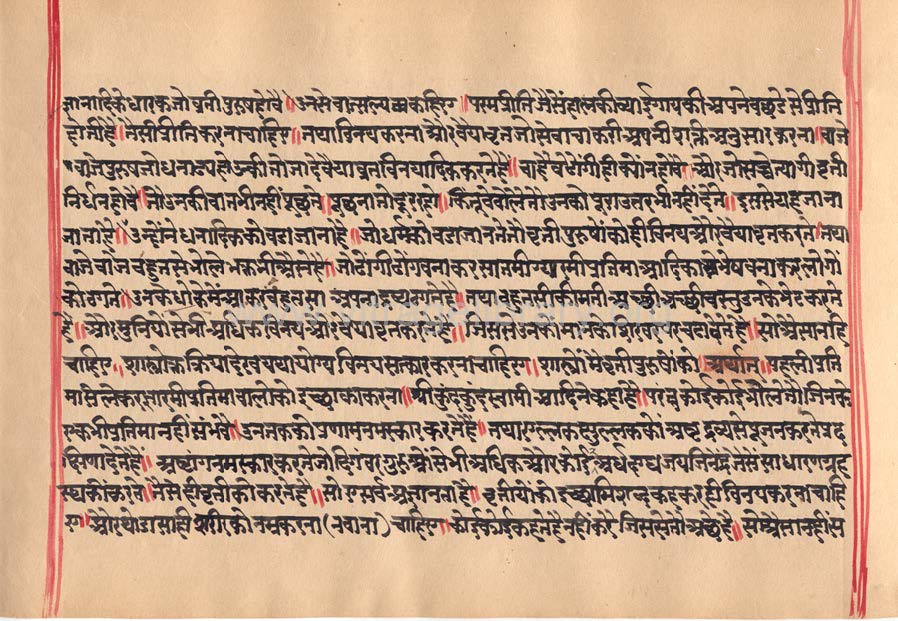 ज्ञानादिकेधारकजोवृतीपुरुषहोवै॥उनसेवात्सल्यताकहिए॥परमप्रीतिजैसेंहालकीव्याईगायकीअपनेवछडेसेप्रीति
होतीहै॥तैसीप्रीतिकरनाचाहिए॥तथाविनयकरनाऔरवैयावृतजोसेवाचाकरीअपनीशक्तिअनुसारकरना॥वाजे
वाजेपुरुषजोधनाढ्यहोउन्कीतोजादेवैयावृतविनयादिककरतेहैं॥चाहेंवेढोंगीहीक्योंनहोवै॥औरजोसच्चेत्यागीवृती
निर्धनहोवैं॥तोउनकीवातभीनहींपूछते॥पूछनातोदूररहो॥किन्तुवेवोलेतोउनकोपूराउतरभीनहींदेते॥इससेयहजाना
जाताहै॥उन्होंनेधनादिककोवडाजानाहै॥जोधर्मकोवडाजानतेतोवृतीपुरुषोंकोहीविनयऔरवैयावृतकरते॥तथा
वाजेवाजेवहुतसेभोलेभक्तभीऔसेहैं॥जोढोंगीढोंगवनाकरसातमीग्यारमीप्रतिमाआदिकाभेषवनाकरलोगों
कोठगते॥उनकेधोकेमेंआकरवहुतसाअपनाद्रव्यठगातेहैं॥तथावहुतसीकीमतीअच्छीअच्छीवस्तुउनकेभेटकरते
हैं॥औरमुनियोंसेभीअधिकविनयऔरवैयावृतकरतेहैं॥जिससेउनकोमानकेशिखरपरचढादेतेहैं॥सोऔसानहि
चाहिए॥शास्त्रोक्तक्रियादेखयथायोग्यविनयसत्कारकरनाचाहिए॥शास्त्रोंमेंवृतीपुरुषोंको॥अर्थात्॥पहलीप्रति
मासेंलेकरग्यारमीप्रतिमावालोकोइच्छाकाकरना॥श्रीकुंदकुंदस्वामीआदिनेकहाहै॥परंतुकोईकोईभोलेतोजिनके
एकभीप्रतिमानहींसंभवे॥उनतककोप्रणामनमस्कारकरतेहैं॥तथाएल्लकक्षुल्लककोंअष्टद्रव्यसेपूजनकरतेप्रद
क्षिणादेतेहैं॥अष्टांगनमस्कारकरतेजोदिगंवरगुरुओंसेभीअधिकऔरकोईअर्धदग्धजयजिनेंद्रजैसेंसाधारणग्रह
स्थकोंकरवे॥तैसेहीवृतीकोकरतेहैं॥सोएसर्वअज्ञानताहै॥वृतीयोंकोइच्छामिशब्दकहकरहीविनयकरनाचाहि
ए॥औरथोडासाहीशरीरकोनम्रकरना(नवाना)चाहिए॥कोईकोईकहतेहैनहींकरैंजिससेतोअच्छेहै॥सोऔसानहींस